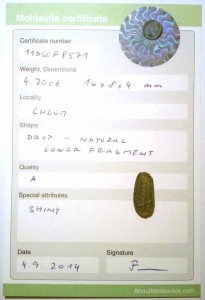 Moldavite certificate
Certificate number
11DGCF8571
Weight, Dimensions
4.70ct 14x8x4 mm
Locality
CHLUM
Shape
DROP - NATURAL
LOWER FRAGMENT
Quality
A
Special attributes
SHINY
Date
Signature
4.9.2014
AboutMoldavites.com